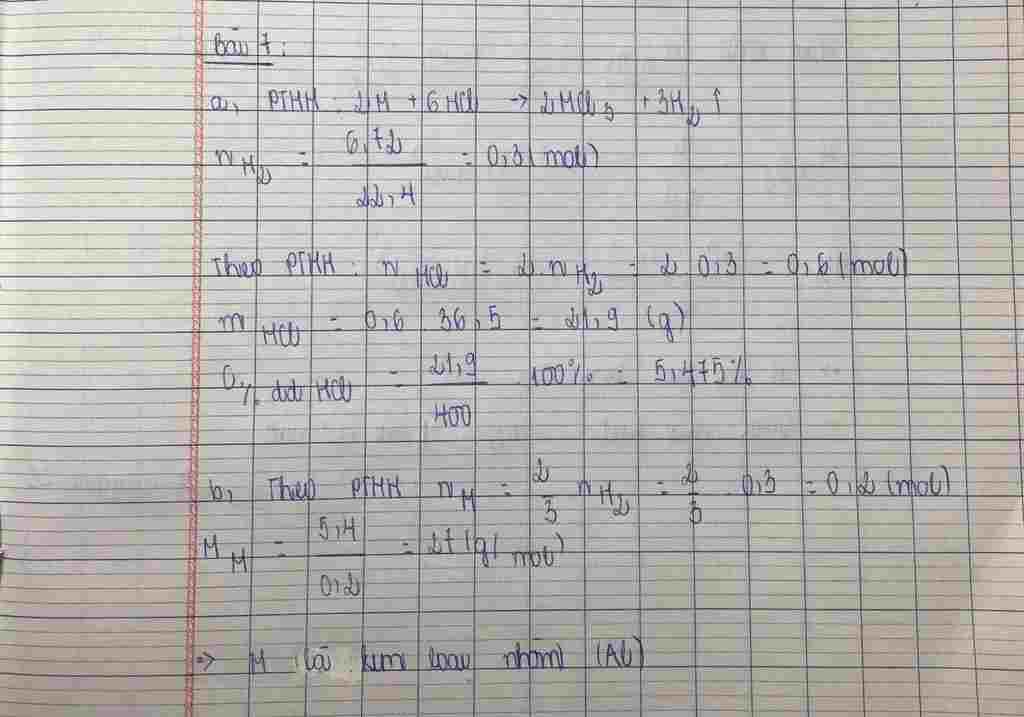 Bài 7:
a, PTHH : 2M + 6HCl → 2MCl₃ + 3H₂ ↑
n H₂ = 6,72 / 22,4 = 0,3 (mol)
Theo PTHH : n HCl = 2. n H₂ = 2 . 0,3 = 0,6 (mol)
m HCl = 0,6 . 36,5 = 21,9 (g)
C% dd HCl = 21,9 / 400 . 100% = 5,475%
b, Theo PTHH n M = 2/3 n H₂ = 2/3 . 0,3 = 0,2 (mol)
M M = 5,4 / 0,2 = 27 (g/mol)
=> M là kim loại nhôm (Al)